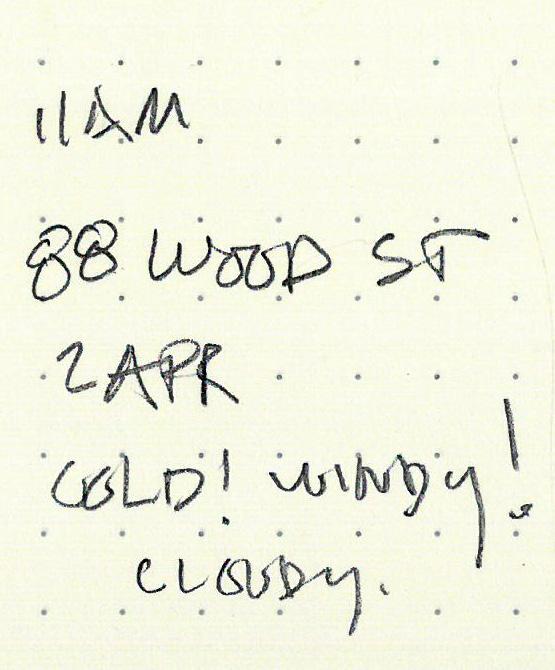 11AM
88 WOOD ST
2 APR
COLD! WINDY!
CLOUDY.